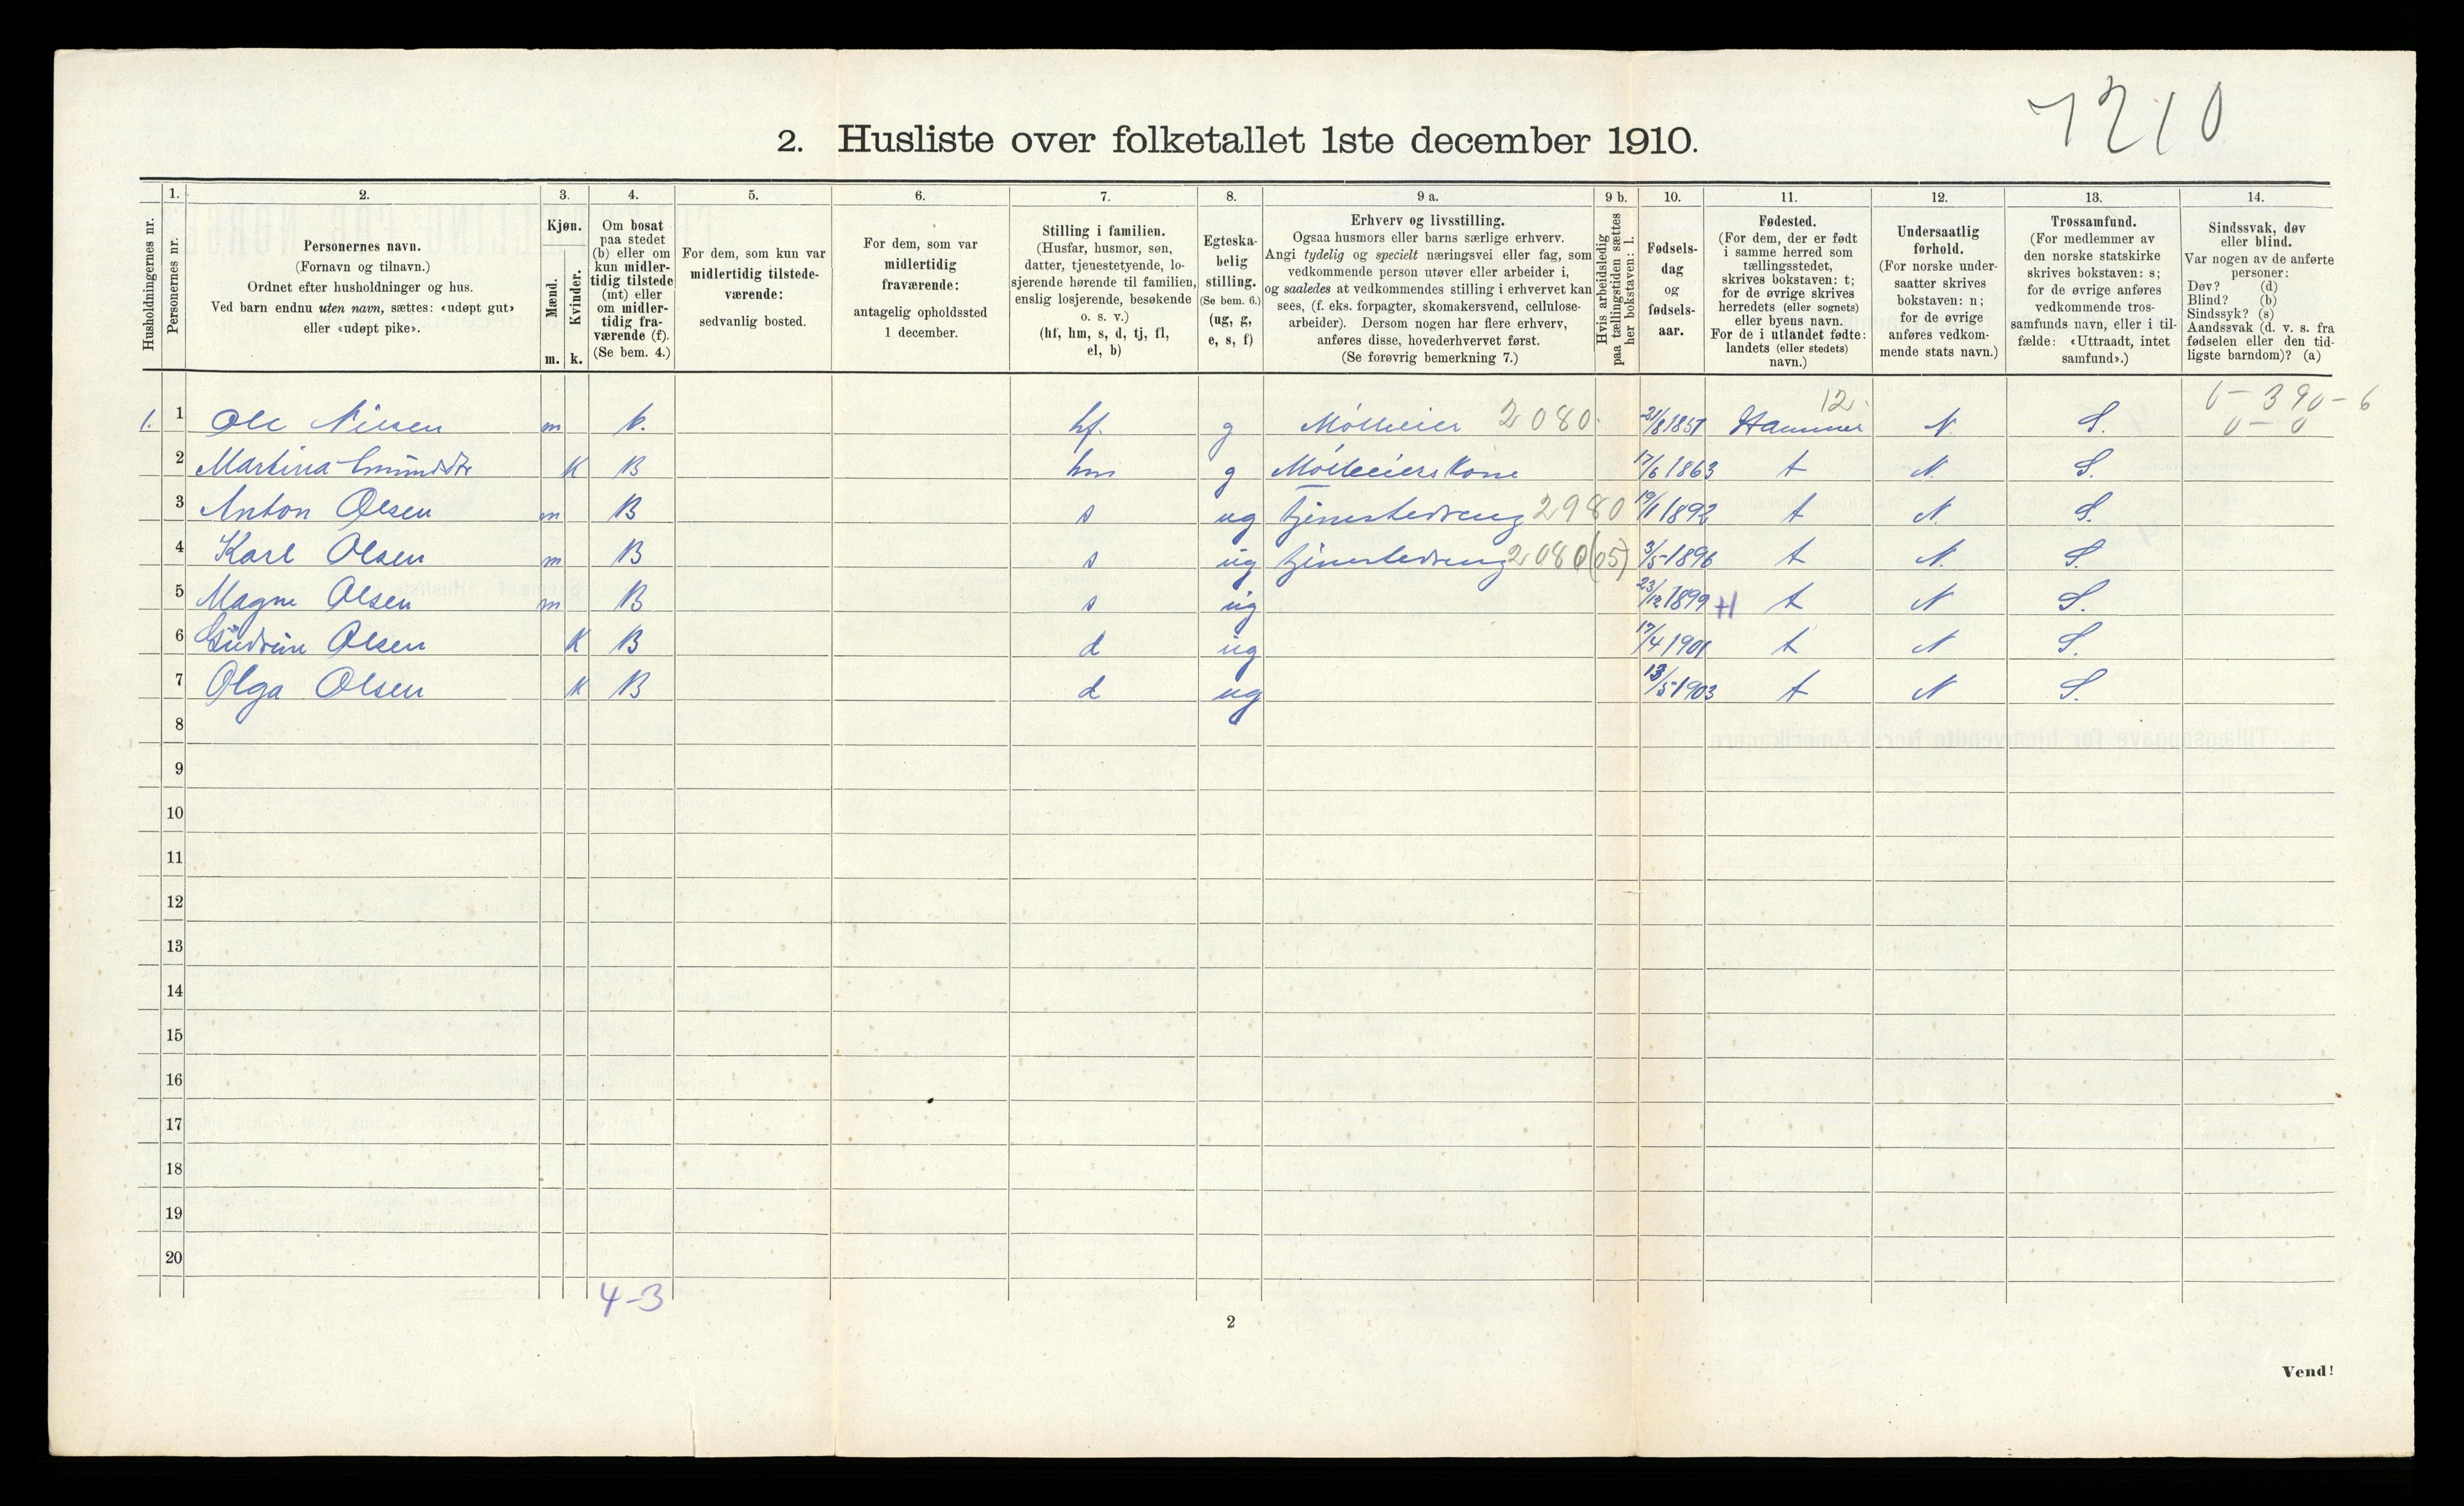 7210
2. Husliste over folketallet 1ste december 1910.
Husholdningernes nr.
1. Personernes nr.
2. Personernes navn.
(Fornavn og tilnavn.)
Ordnet efter husholdninger og hus.
Ved barn endnu uten navn, sættes: «udøpt gut»
eller «udøpt pike».
3. Kjøn.
Mænd. m.
Kvinder. k.
4. Om bosat
paa stedet
(b) eller om
kun midler-
tidig tilstede
(mt) eller
om midler-
tidig fra-
værende (f).
(Se bem. 4.)
5. For dem, som kun var
midlertidig tilstede-
værende:
sedvanlig bosted.
6. For dem, som var
midlertidig
fraværende:
antagelig opholdssted
1 december.
7. Stilling i familien.
(Husfar, husmor, søn,
datter, tjenestetyende, lo-
sjerende hørende til familien,
enslig losjerende, besøkende
o. s. v.)
(hf, hm, s, d, tj, fl,
el, b)
8. Egteska-
belig
stilling.
(Se bem. 6.)
(ug, g,
e, s, f)
9 a. Erhverv og livsstilling.
Ogsaa husmors eller barns særlige erhverv.
Angi tydelig og specielt næringsvei eller fag, som
vedkommende person utøver eller arbeider i,
og saaledes at vedkommendes stilling i erhvervet kan
sees, (f. eks. forpagter, skomakersvend, cellulose-
arbeider). Dersom nogen har flere erhverv,
anføres disse, hovederhvervet først.
(Se forøvrig bemerkning 7.)
9 b. Hvis arbeidsledig
paa tællingstiden sættes
her bokstaven: l.
10. Fødsels-
dag
og
fødsels-
aar.
11. Fødested.
(For dem, der er født
i samme herred som
tællingsstedet,
skrives bokstaven: t;
for de øvrige skrives
herredets (eller sognets)
eller byens navn.
For de i utlandet fødte:
landets (eller stedets)
navn.)
12. Undersaatlig
forhold.
(For norske under-
saatter skrives
bokstaven: n;
for de øvrige
anføres vedkom-
mende stats navn.)
13. Trossamfund.
(For medlemmer av
den norske statskirke
skrives bokstaven: s;
for de øvrige anføres
vedkommende tros-
samfunds navn, eller i til-
fælde: «Uttraadt, intet
samfund».)
14. Sindssvak, døv
eller blind.
Var nogen av de anførte
personer:
Døv? (d)
Blind? (b)
Sindssyk? (s)
Aandssvak (d. v. s. fra
fødselen eller den tid-
ligste barndom)? (a)
12 0 - 390 - 6
1. 1 Ole Nilsen m b. hf. g Mølleier 2080 21/8 1857 Hammer N. S. 0 - 0
2 Martina K B hm g Mølleiers kone 17/6 1863 t N. S.
3 Anton Olsen m B s ug tjenestedreng 2980 19/1 1892 t N. S.
4 Karl Olsen m B s ug tjenestedreng 2080 (05) 3/5 1896 t N. S.
5 Magne Olsen m B s ug 23/12 1899 t N S.
6 Gudrun Olsen K B d ug 17/4 1901 t N S.
7 Olga Olsen K B d ug 13/5 1903 t N S.
8
9
10
11
12
13
14
15
16
17
18
19
20
4-3
2
Vend!